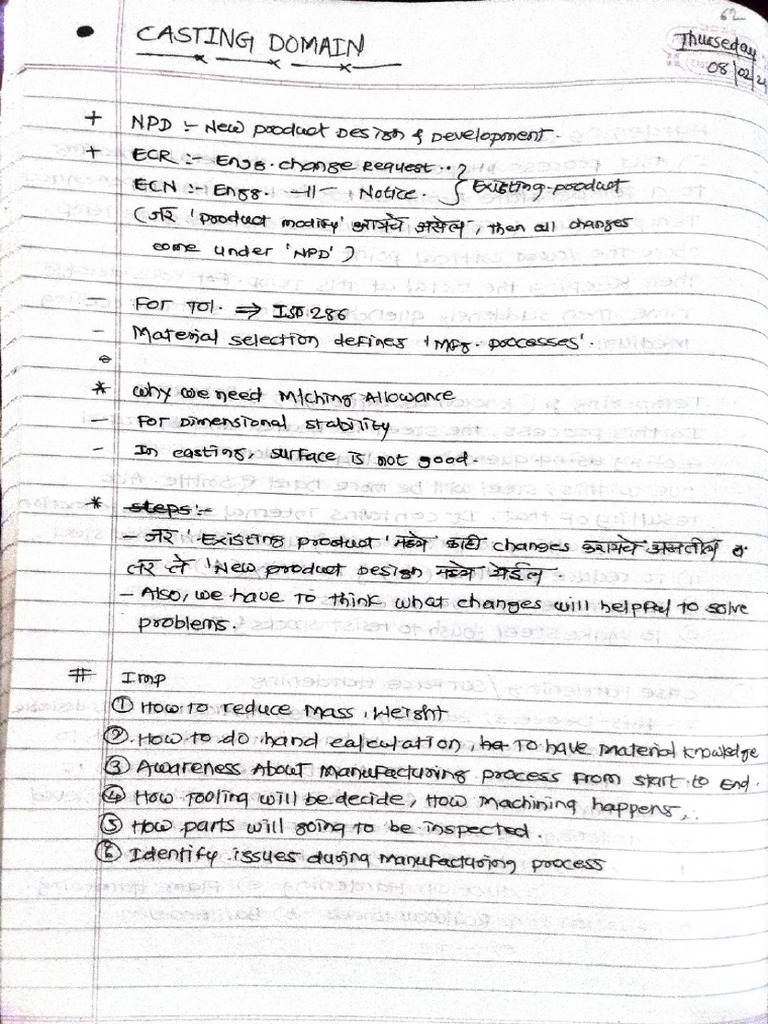 62
CASTING DOMAIN
Thurseday
08/02/2
+ NPD :- New product Design & Development.
+ ECR :- Engg. change Request.. }
ECN :- Engg. -11- Notice. } Existing product
(जर 'product modify' करायचे असेल, then all changes
come under 'NPD')
For Tol. ⇒ ISO 286
- Material selection defines 'Mfg. processes'.
* why we need M/ching Allowance
- For Dimensional stability
- In casting, surface is not good.
* steps:-
- जर 'Existing product' मध्ये काही changes करायचे असतील
तर ते 'New product Design मध्ये येईल
- Also, we have to think what changes will helpful to solve
problems.
# Imp
① How to reduce Mass, Weight
② How to do hand calculation, To have Material knowledge
③ Awareness About manufacturing process from start to End.
④ How Tooling will be decide, How Machining happens,
⑤ How parts will going to be inspected.
⑥ Identify issues during Manufacturing process